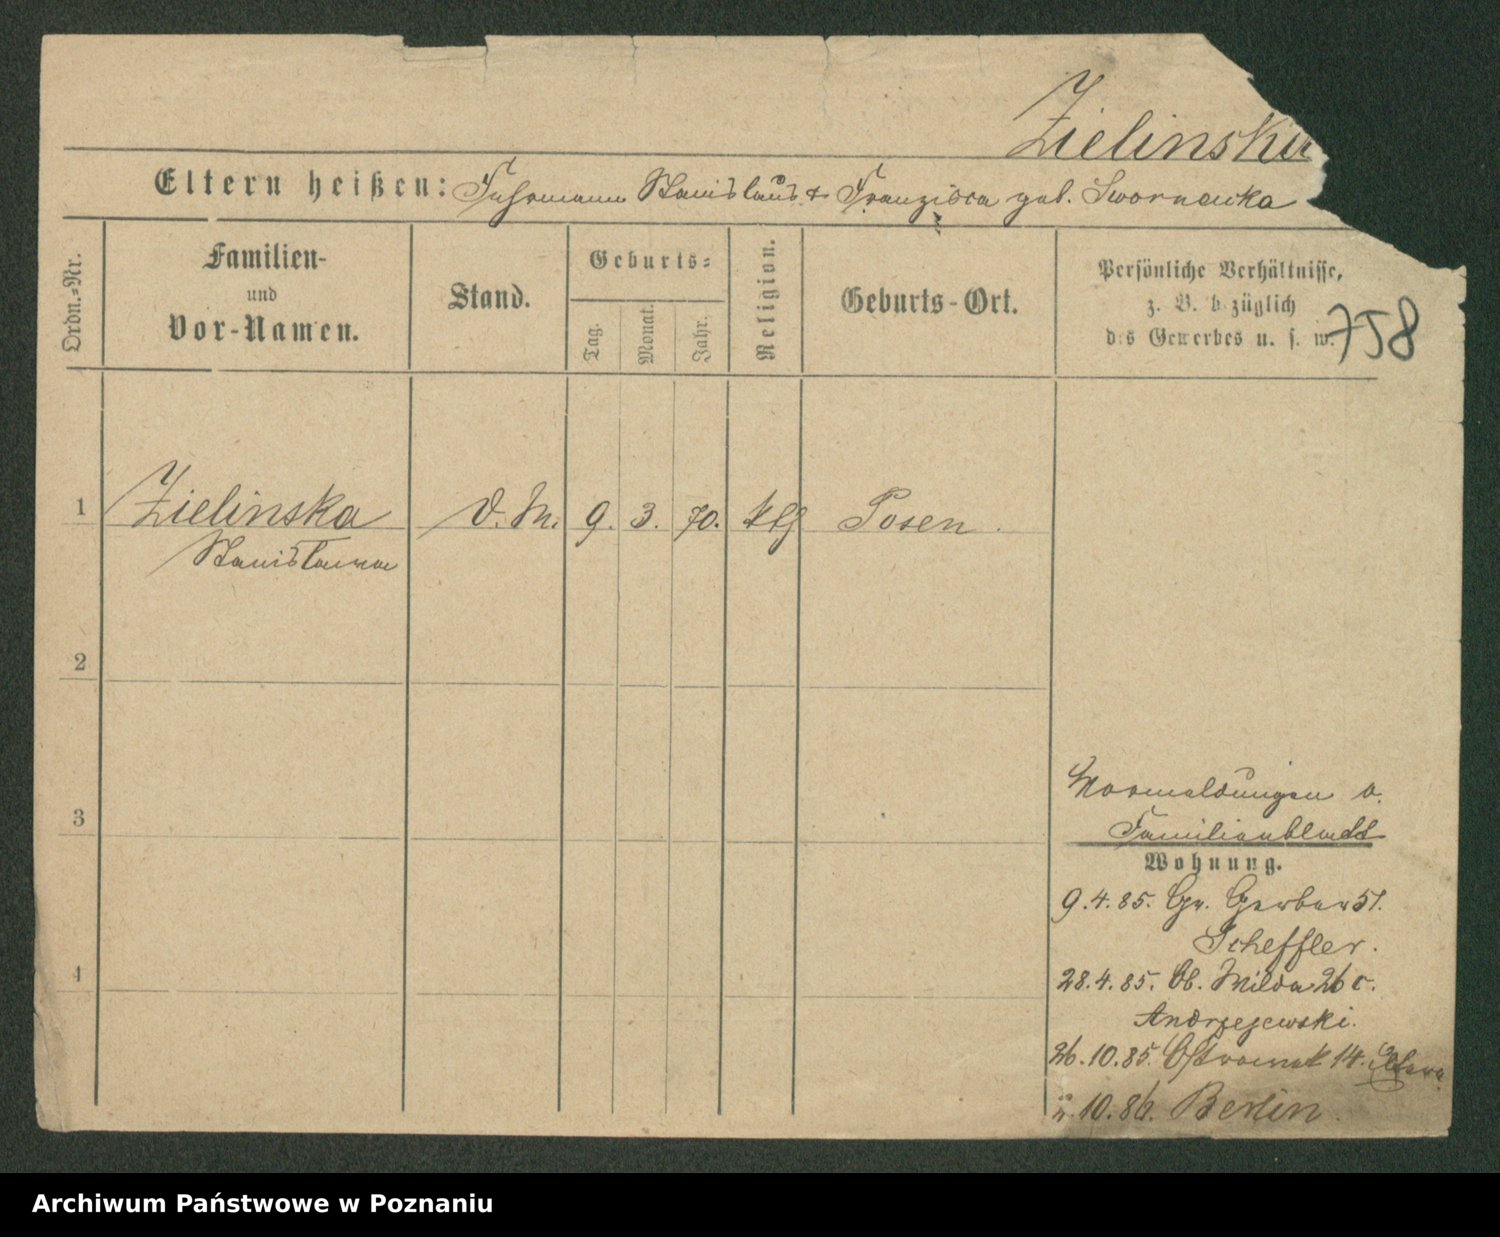 Zielinska
Eltern heißen: Fuhrmann Stanislaus & Franzisca geb. Swornowka
Ordn.-Nr.
Familien-
und
Vor-Namen.
Stand.
Geburts-
Tag.
Monat.
Jahr.
Religion.
Geburts-Ort.
Persönliche Verhältnisse,
z. B. bezüglich
des Gewerbes u. s. w.
758
1 Zielinska D. M. 9. 3. 70. klg Posen.
Stanislawa
2
3
4
Vormeldungen v.
Familienblatt
Wohnung.
9.4.85. Gr. Gerber 51.
Scheffler.
28.4.85. Ob. Wilda 26 c.
Andrzejewski.
26.10.85. Ostrowek 14. Eltern
10.86. Berlin.
Archiwum Państwowe w Poznaniu